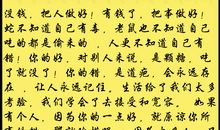 没钱，把人做好！有钱了，把事做好！
蛇不知道自己有毒，老鼠也不知道自己
吃的都是偷来的，人更不知道自己有
错！你的好，对别人来说，是颗糖，吃
了就没了！你的错，是道疤，会永远存
在，让人永远记住，生活给了我们太多
考验，我们学会了去接受和宽容。如果
有个人，因为你的一点好，就原谅你所